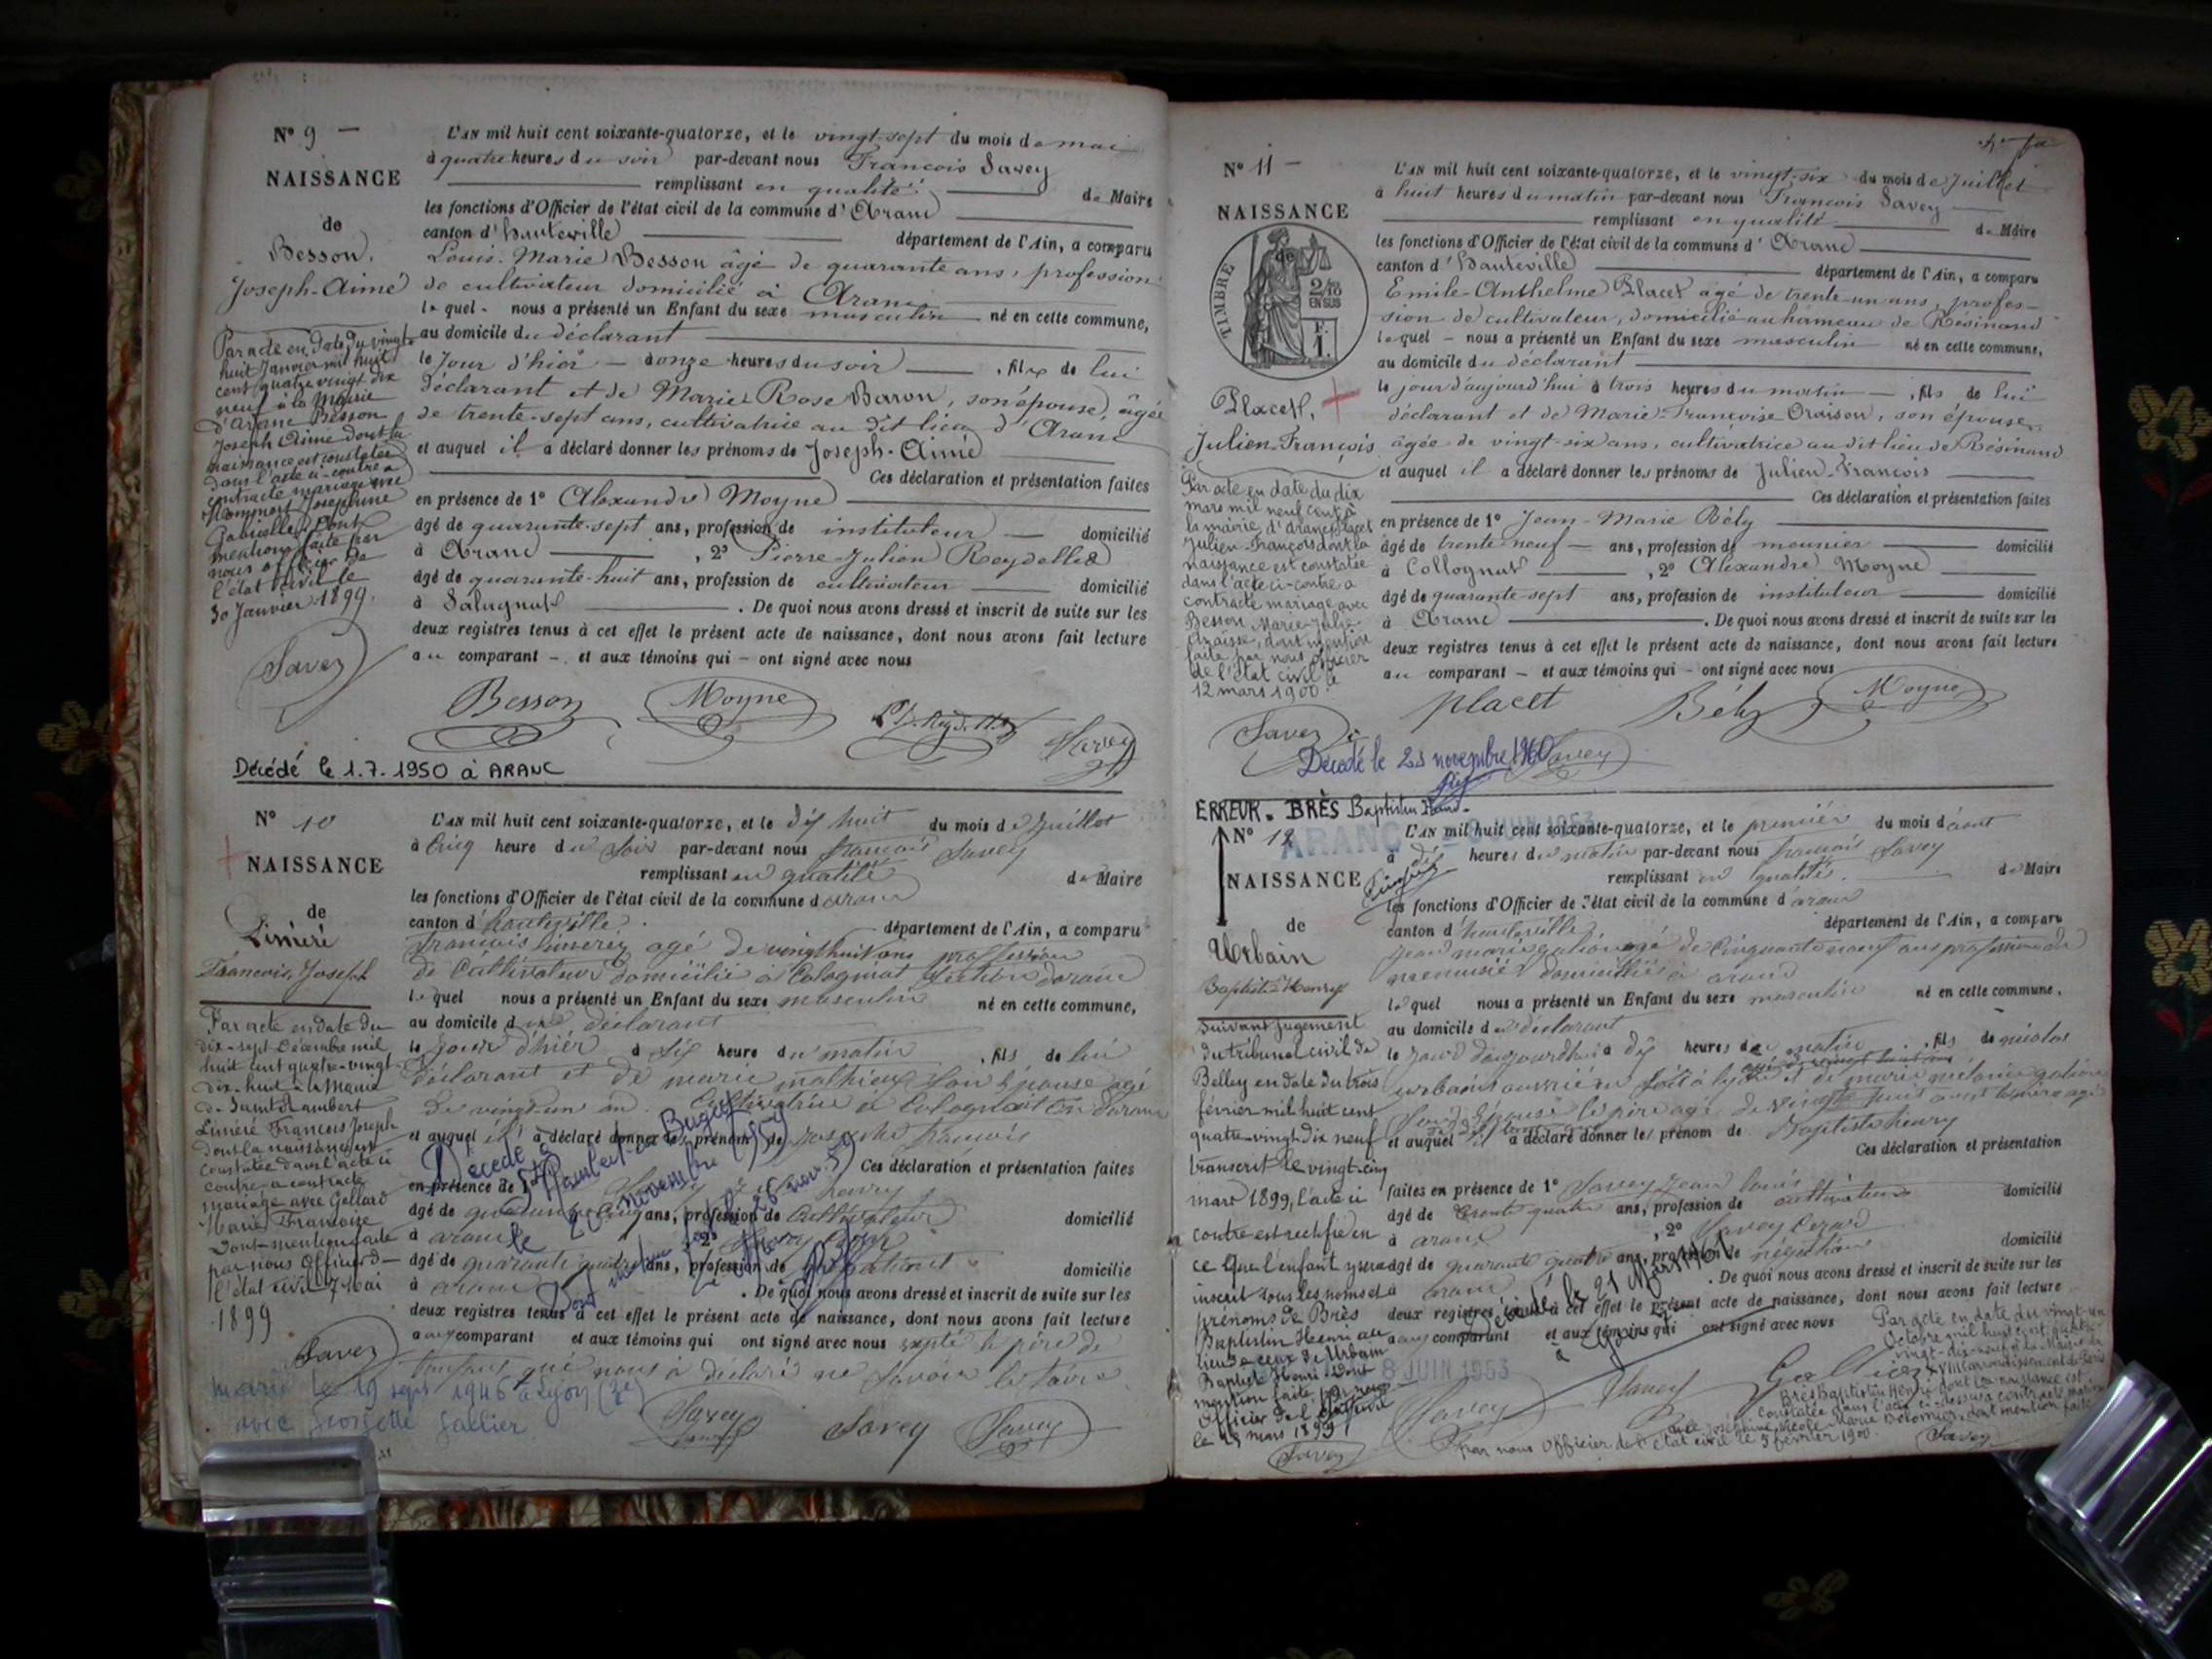 N° 9 —
NAISSANCE
de
Besson,
Joseph-Aimé
Par acte en date du vingt
huit Janvier mil huit
cent quatre vingt dix
neuf à la Mairie
d'Aranc Besson
Joseph Aimé dont la
naissance est constatée
dans l'acte ci-contre a
contracté mariage avec
Josephine
Gabrielle, dont
mention faite par
nous officier de
l'état civil le
30 Janvier 1899.
Savey
L'AN mil huit cent soixante-quatorze, et le vingt-sept du mois de mai
à quatre heures du soir par-devant nous François Savey
remplissant en qualité de Maire
les fonctions d'Officier de l'état civil de la commune d'Aranc
canton d'hauteville département de l'Ain, a comparu
Louis-Marie Besson âgé de quarante ans, profession
de cultivateur domicilié à Aranc
lequel nous a présenté un Enfant du sexe masculin né en cette commune,
au domicile du déclarant
le Jour d'hier à onze heures du soir, fils de lui
déclarant et de Marie Rose Baron, son épouse, âgée
de trente-sept ans, cultivatrice au dit lieu d'Aranc
et auquel il a déclaré donner les prénoms de Joseph-Aimé
Ces déclaration et présentation faites
en présence de 1° Alexandre Moyne
âgé de quarante-sept ans, profession de instituteur domicilié
à Aranc, 2° Pierre-Julien Reydellet
âgé de quarante-huit ans, profession de cultivateur domicilié
à . De quoi nous avons dressé et inscrit de suite sur les
deux registres tenus à cet effet le présent acte de naissance, dont nous avons fait lecture
au comparant - et aux témoins qui - ont signé avec nous
Besson Moyne Savey
Décédé le 1.7.1950 à ARANC
N° 10
NAISSANCE
de
Liniéré
François, Joseph
Par acte en date du
dix-sept Décembre mil
huit cent quatre-vingt-
dix-huit à la Mairie
de Saint Rambert
Liniéré François Joseph
dont la naissance est
constatée dans l'acte ci
contre a contracté
mariage avec Gallard
Marie Françoise
Dont mention faite
par nous Officier de
l'état civil 7 Mai
1899
Savey
L'AN mil huit cent soixante-quatorze, et le dix huit du mois de Juillet
à cinq heure du soir par-devant nous françois Savey
remplissant en qualité de Maire
les fonctions d'Officier de l'état civil de la commune d'aranc
canton d'hauteville département de l'Ain, a comparu
françois agé de vingt huit ans profession
de Cultivateur domicilié à Colognat section d'aranc
lequel nous a présenté un Enfant du sexe masculin né en cette commune,
au domicile du déclarant
le jour d'hier à six heure du matin, fils de lui
déclarant et de marie mathieu son épouse agé
de vingt un an Cultivatrice à Colognat
et auquel il a déclaré donner les prénom de joseph françois
Ces déclaration et présentation faites
en présence de 1° henry
âgé de quarante cinq ans, profession de Cultivateur domicilié
à aranc, 2° Savey
âgé de quarante quatre ans, profession de domicilié
à aranc. De quoi nous avons dressé et inscrit de suite sur les
deux registres tenus à cet effet le présent acte de naissance, dont nous avons fait lecture
aux comparant et aux témoins qui ont signé avec nous le père de
l'enfant qui nous à déclaré ne savoir le faire
Décédé à St Rambert-en Bugey
le 20 novembre 1959
Dont mention le 26 nov. 59
Le Maire
marié le 19 sept 1946 à Lyon (3e)
avec Georgette Gallier
Savey Savey Savey
N° 11 —
NAISSANCE
de
TIMBRE
2/10
EN SUS
Placet,
Julien-François
Par acte en date du dix
mars mil neuf cent à
la mairie d'Aranc Placet
Julien-François dont la
naissance est constatée
dans l'acte ci-contre a
contracté mariage avec
Besson Marie-Julie
, dont mention
faite par nous officier
de l'état civil le
12 mars 1900.
Savey
L'AN mil huit cent soixante-quatorze, et le vingt-six du mois de Juillet
à huit heures du matin par-devant nous François Savey
remplissant en qualité de Maire
les fonctions d'Officier de l'état civil de la commune d'Aranc
canton d'hauteville département de l'Ain, a comparu
Emile-Anthelme Placet âgé de trente-un ans, profes-
sion de cultivateur, domicilié au hameau de Résinand
lequel - nous a présenté un Enfant du sexe masculin né en cette commune,
au domicile du déclarant
le jour d'aujourd'hui à trois heures du matin, fils de lui
déclarant et de Marie-Françoise Oraison, son épouse
âgée de vingt-six ans, cultivatrice au dit lieu de Résinand
et auquel il a déclaré donner les prénoms de Julien-François
Ces déclaration et présentation faites
en présence de 1° Jean-Marie Bély
âgé de trente-neuf ans, profession de meunier domicilié
à Collognat, 2° Alexandre Moyne
âgé de quarante-sept ans, profession de instituteur domicilié
à Aranc. De quoi nous avons dressé et inscrit de suite sur les
deux registres tenus à cet effet le présent acte de naissance, dont nous avons fait lecture
au comparant - et aux témoins qui - ont signé avec nous
placet Bély Moyne
Savey
Décédé le 21 novembre 1960
ERREUR. BRÈS Baptistin Henri.
ARANC 8 JUIN 1953
N° 12
NAISSANCE
de
Urbain
Baptiste Henry
Suivant Jugement
du tribunal civil de
Belley en date du trois
février mil huit cent
quatre-vingt dix neuf
transcrit le vingt-cinq
mars 1899, l'acte ci
contre est rectifié en
ce que l'enfant y sera
inscrit sous les noms et
prénoms de Brès
Baptistin Henri au
lieu de ceux de Urbain
Baptiste Henri. Dont
mention faite par nous
Officier de l'état civil
le 25 mars 1899
Savey
L'AN mil huit cent soixante-quatorze, et le premier du mois d'aout
à dix heures du matin par-devant nous françois Savey
remplissant en qualité de Maire
les fonctions d'Officier de l'état civil de la commune d'aranc
canton d'hauteville département de l'Ain, a comparu
jean marie agé de Cinquante neuf ans profession de
menusier domicilié à aranc
lequel nous a présenté un Enfant du sexe masculin né en cette commune,
au domicile du déclarant
le jour d'aujourdhui à dix heures du matin, fils de nicolas
urbain à lyon et de marie
le père agé de vingt huit ans
et auquel il a déclaré donner les prénom de Baptiste henry
Ces déclaration et présentation
faites en présence de 1° Savey Jean louis
âgé de trente quatre ans, profession de cultivateur domicilié
à aranc, 2° Savey
âgé de quarante quatre ans, profession de négotiant domicilié
à aranc. De quoi nous avons dressé et inscrit de suite sur les
deux registres tenus à cet effet le présent acte de naissance, dont nous avons fait lecture
aux comparant et aux témoins qui ont signé avec nous
Décédé le 21 Mars 1961
à Lyon
8 JUIN 1953
Savey Savey
Par acte en date du vingt-un
Octobre mil huit cent quatre-
vingt-dix-neuf à la Mairie du
XVIII arrondissement de Paris
Brès Baptistin Henri dont la naissance est
constatée dans l'acte ci-dessus a contracté mariage
avec Joséphine Nicole Marie Delomier, dont mention faite
par nous Officier de l'état civil le 3 février 1900.
Savey